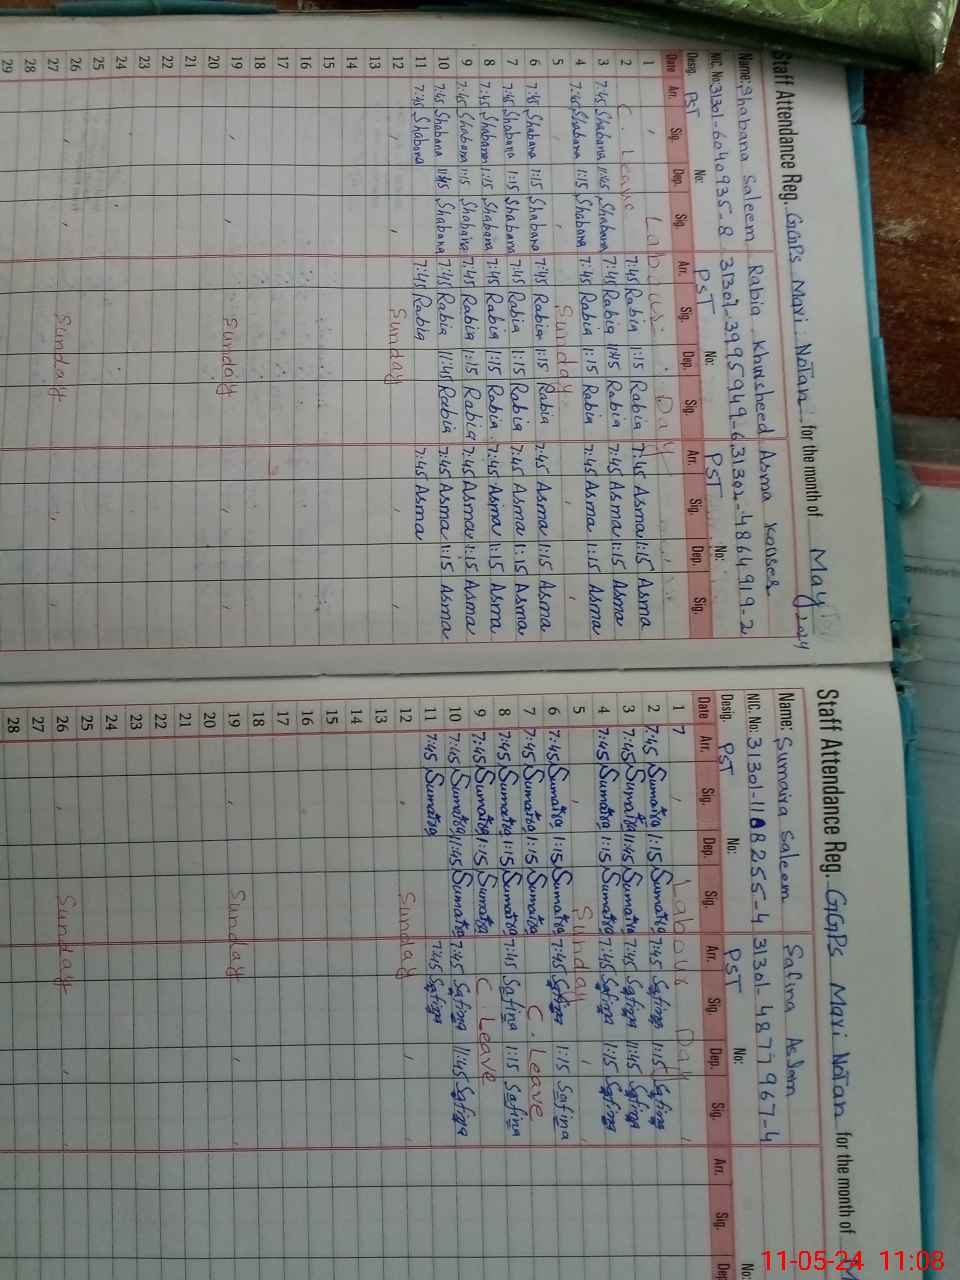 Staff Attendance Reg. GGPs Mari Notan for the month of May 2024
Name: Shabana Saleem Rabia Khursheed Asma Konser
NIC. No: 31301-6040935-8 31304-3995949-6 31302-4864919-2
Desig. PST No: PST No: PST No:
Date Arr. Sig. Dep. Sig. Arr. Sig. Dep. Sig. Arr. Sig. Dep. Sig.
1 Labour Day
2 C. Leave 7:45 Rabia 1:15 Rabia 7:45 Asma 1:15 Asma
3 7:45 Shabana 11:45 Shabana 7:45 Rabia 11:45 Rabia 7:45 Asma 1:15 Asma
4 7:45 Shabana 1:15 Shabana 7:45 Rabia 1:15 Rabia 7:45 Asma 1:15 Asma
5 Sunday
6 7:45 Shabana 1:15 Shabana 7:45 Rabia 1:15 Rabia 7:45 Asma 1:15 Asma
7 7:45 Shabana 1:15 Shabana 7:45 Rabia 1:15 Rabia 7:45 Asma 1:15 Asma
8 7:45 Shabana 1:15 Shabana 7:45 Rabia 1:15 Rabia 7:45 Asma 1:15 Asma
9 7:45 Shabana 1:15 Shabana 7:45 Rabia 1:15 Rabia 7:45 Asma 1:15 Asma
10 7:45 Shabana 11:45 Shabana 7:45 Rabia 11:45 Rabia 7:45 Asma 1:15 Asma
11 7:45 Shabana 7:45 Rabia 7:45 Asma
12 Sunday
13
14
15
16
17
18
19 Sunday
20
21
22
23
24
25
26 Sunday
27
28
29
Staff Attendance Reg. GGPs Mari Notan for the month of
Name: Sumaira Saleem Safina Aslam
NIC. No: 31301-1108255-4 31301-4877967-4
Desig. PST No: PST No: No:
Date Arr. Sig. Dep. Sig. Arr. Sig. Dep. Sig. Arr. Sig. Dep
1 7 Labour Day
2 7:45 Sumaira 1:15 Sumaira 7:45 Safina 1:15 Safina
3 7:45 Sumaira 11:45 Sumaira 7:45 Safina 11:45 Safina
4 7:45 Sumaira 1:15 Sumaira 7:45 Safina 1:15 Safina
5 Sunday
6 7:45 Sumaira 1:15 Sumaira 7:45 Safina 1:15 Safina
7 7:45 Sumaira 1:15 Sumaira C. Leave
8 7:45 Sumaira 1:15 Sumaira 7:45 Safina 1:15 Safina
9 7:45 Sumaira 1:15 Sumaira C. Leave
10 7:45 Sumaira 11:45 Sumaira 7:45 Safina 11:45 Safina
11 7:45 Sumaira 7:45 Safina
12 Sunday
13
14
15
16
17
18
19 Sunday
20
21
22
23
24
25
26 Sunday
27
28
11-05-24 11:08